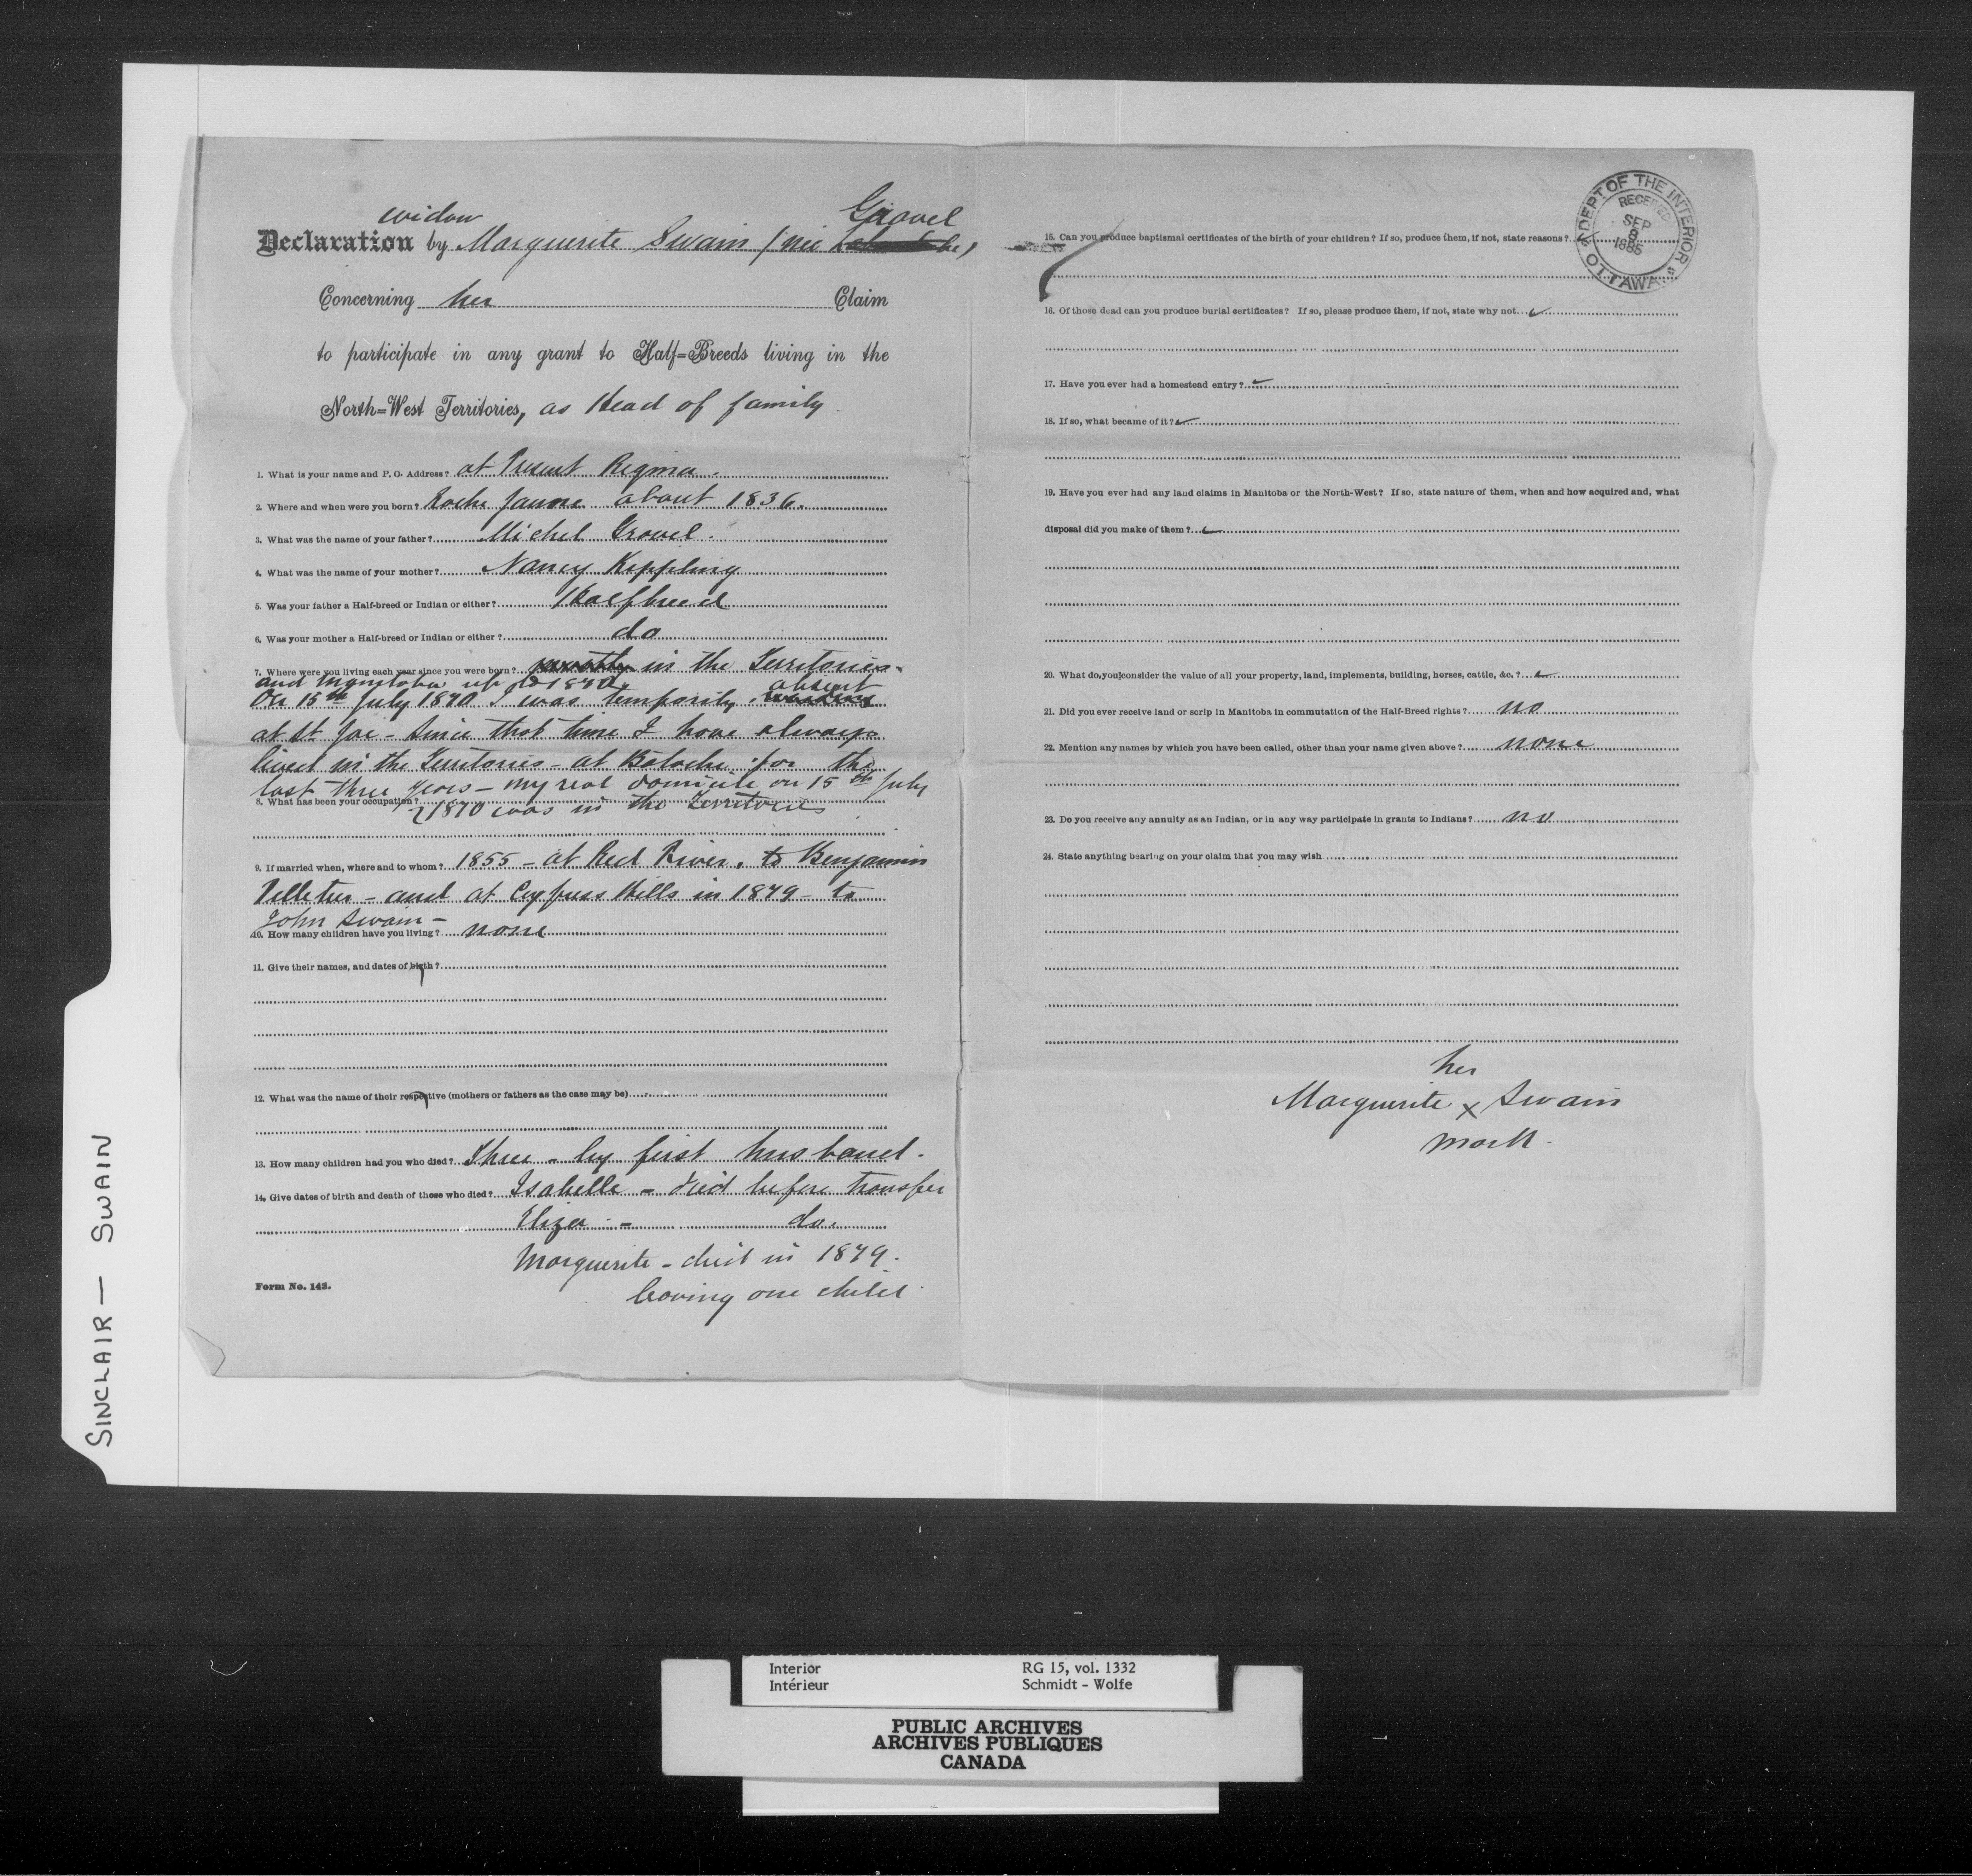 widow
Declaration by Marguerite Swain (née Gravel)
Concerning her Claim
to participate in any grant to Half=Breeds living in the
North=West Territories, as Head of family.
1. What is your name and P. O. Address? at Present Regina.
2. Where and when were you born? Roche Jaune about 1836.
3. What was the name of your father? Michel Gravel.
4. What was the name of your mother? Nancy Kippling
5. Was your father a Half-breed or Indian or either? Halfbreed
6. Was your mother a Half-breed or Indian or either? do
7. Where were you living each year since you were born? in the Territories
and Manitoba up to 1870.
On 15th July 1870 I was temporily absent
at St Joe - Since that time I have always
lived in the Territories - at Batoche for the
last three years - my real domicile on 15th July
8. What has been your occupation?
1870 was in the Territories
9. If married when, where and to whom? 1855 - at Red River, to Benjamin
Velletur - and at Cypress Hills in 1879 - to
John Swain -
10. How many children have you living? none
11. Give their names, and dates of birth?
12. What was the name of their respective (mothers or fathers as the case may be)
13. How many children had you who died? Three - by first husband.
14. Give dates of birth and death of those who died? Isabelle - died before transfer
Eliza - do.
Marguerite - died in 1879.
leaving one child.
Form No. 143.
15. Can you produce baptismal certificates of the birth of your children? If so, produce them, if not, state reasons?
16. Of those dead can you produce burial certificates? If so, please produce them, if not, state why not.
17. Have you ever had a homestead entry?
18. If so, what became of it?
19. Have you ever had any land claims in Manitoba or the North-West? If so, state nature of them, when and how acquired and, what
disposal did you make of them?
20. What do you consider the value of all your property, land, implements, building, horses, cattle, &c.?
21. Did you ever receive land or scrip in Manitoba in commutation of the Half-Breed rights? no
22. Mention any names by which you have been called, other than your name given above? none
23. Do you receive any annuity as an Indian, or in any way participate in grants to Indians? no
24. State anything bearing on your claim that you may wish
her
Marguerite x Swain
mark.
DEPT OF THE INTERIOR
RECEIVED
SEP
8
1885
OTTAWA
SINCLAIR — SWAIN
Interior RG 15, vol. 1332
Intérieur Schmidt - Wolfe
PUBLIC ARCHIVES
ARCHIVES PUBLIQUES
CANADA